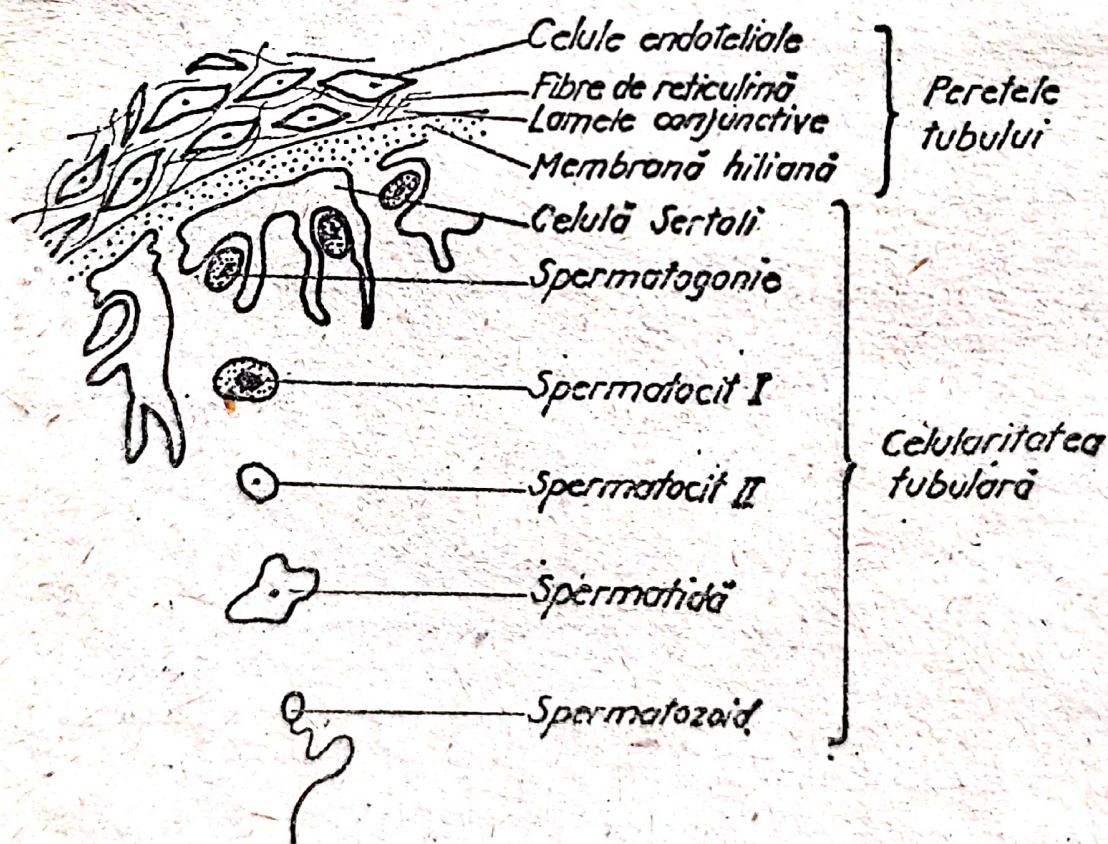 Celule endoteliale
Fibre de reticulină
Lamele conjunctive
Membrană hiliană
Peretele
tubului
Celulă Sertoli
Spermatogonie
Spermatocit I
Spermatocit II
Spermatidă
Spermatozoid
Celularitatea
tubulară